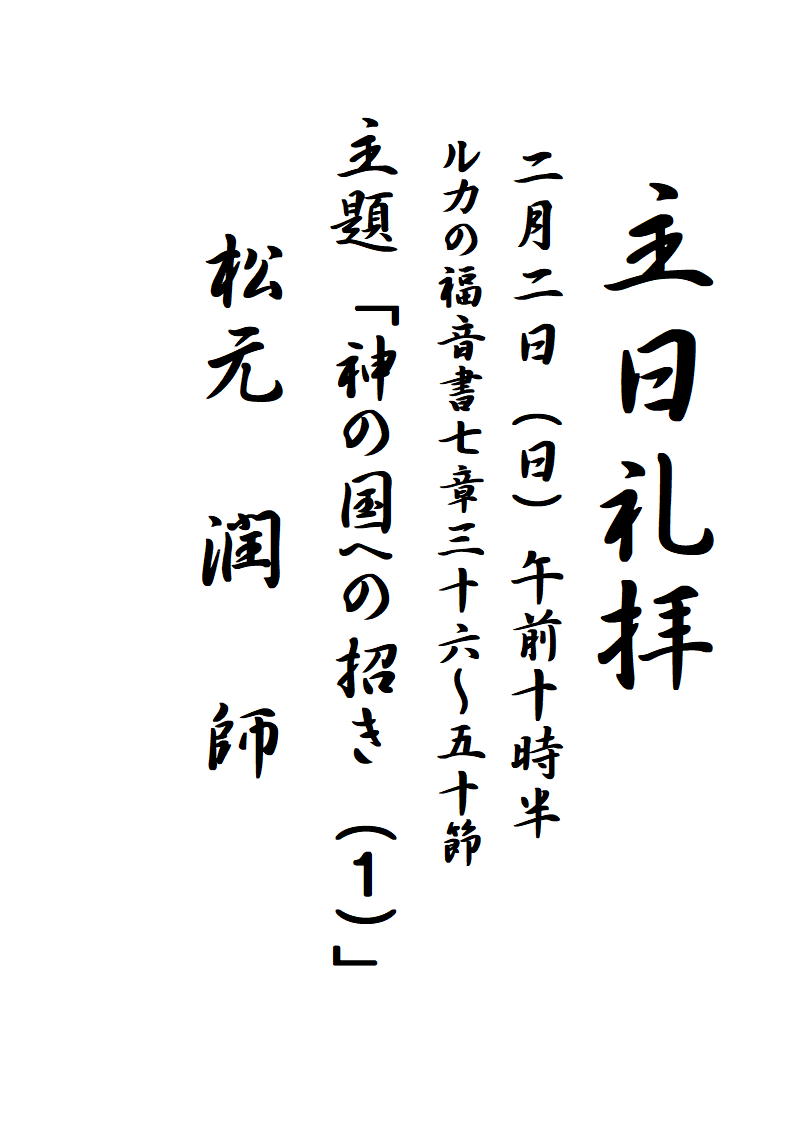 主日礼拝
二月二日（日）午前十時半
ルカの福音書七章三十六～五十節
主題「神の国への招き（1）」
松元 潤 師